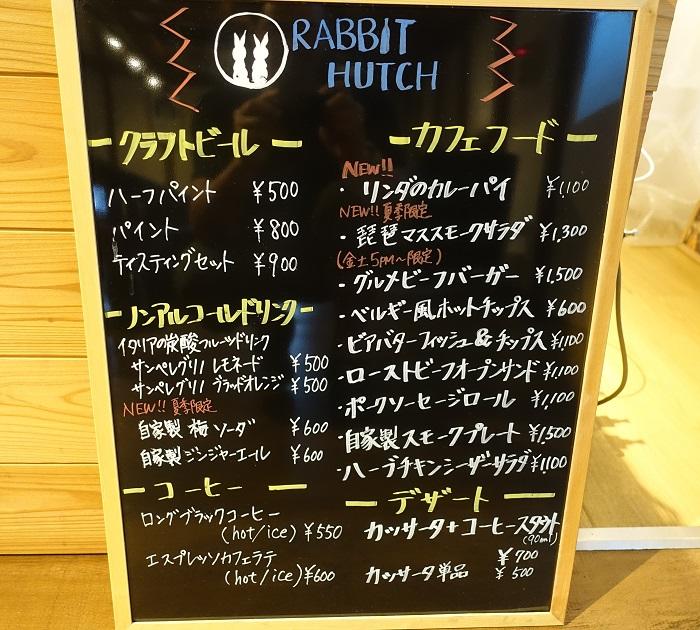 RABBIT
HUTCH
クラフトビール
ハーフパイント ¥500
パイント ¥800
テイスティングセット ¥900
ノンアルコールドリンク
イタリアの炭酸フルーツドリンク
サンペレグリノ レモネード ¥500
サンペレグリノ ブラッドオレンジ ¥500
NEW!! 夏季限定
自家製 梅ソーダ ¥600
自家製ジンジャーエール ¥600
コーヒー
ロングブラックコーヒー
(hot/ice) ¥550
エスプレッソカフェラテ
(hot/ice) ¥600
カフェフード
NEW!!
・リンダのカレーパイ ¥1,100
NEW!! 夏季限定
・琵琶マススモークサラダ ¥1,300
(金土5PM〜限定)
・グルメビーフバーガー ¥1,500
・ベルギー風ホットチップス ¥600
・ビアバターフィッシュ&チップス ¥1,100
・ローストビーフオープンサンド ¥1,100
・ポークソーセージロール ¥1,100
・自家製スモークプレート ¥1,500
・ハーブチキンシーザーサラダ ¥1100
デザート
カッサータ+コーヒースタウト
(90ml)
¥700
カッサータ単品 ¥500